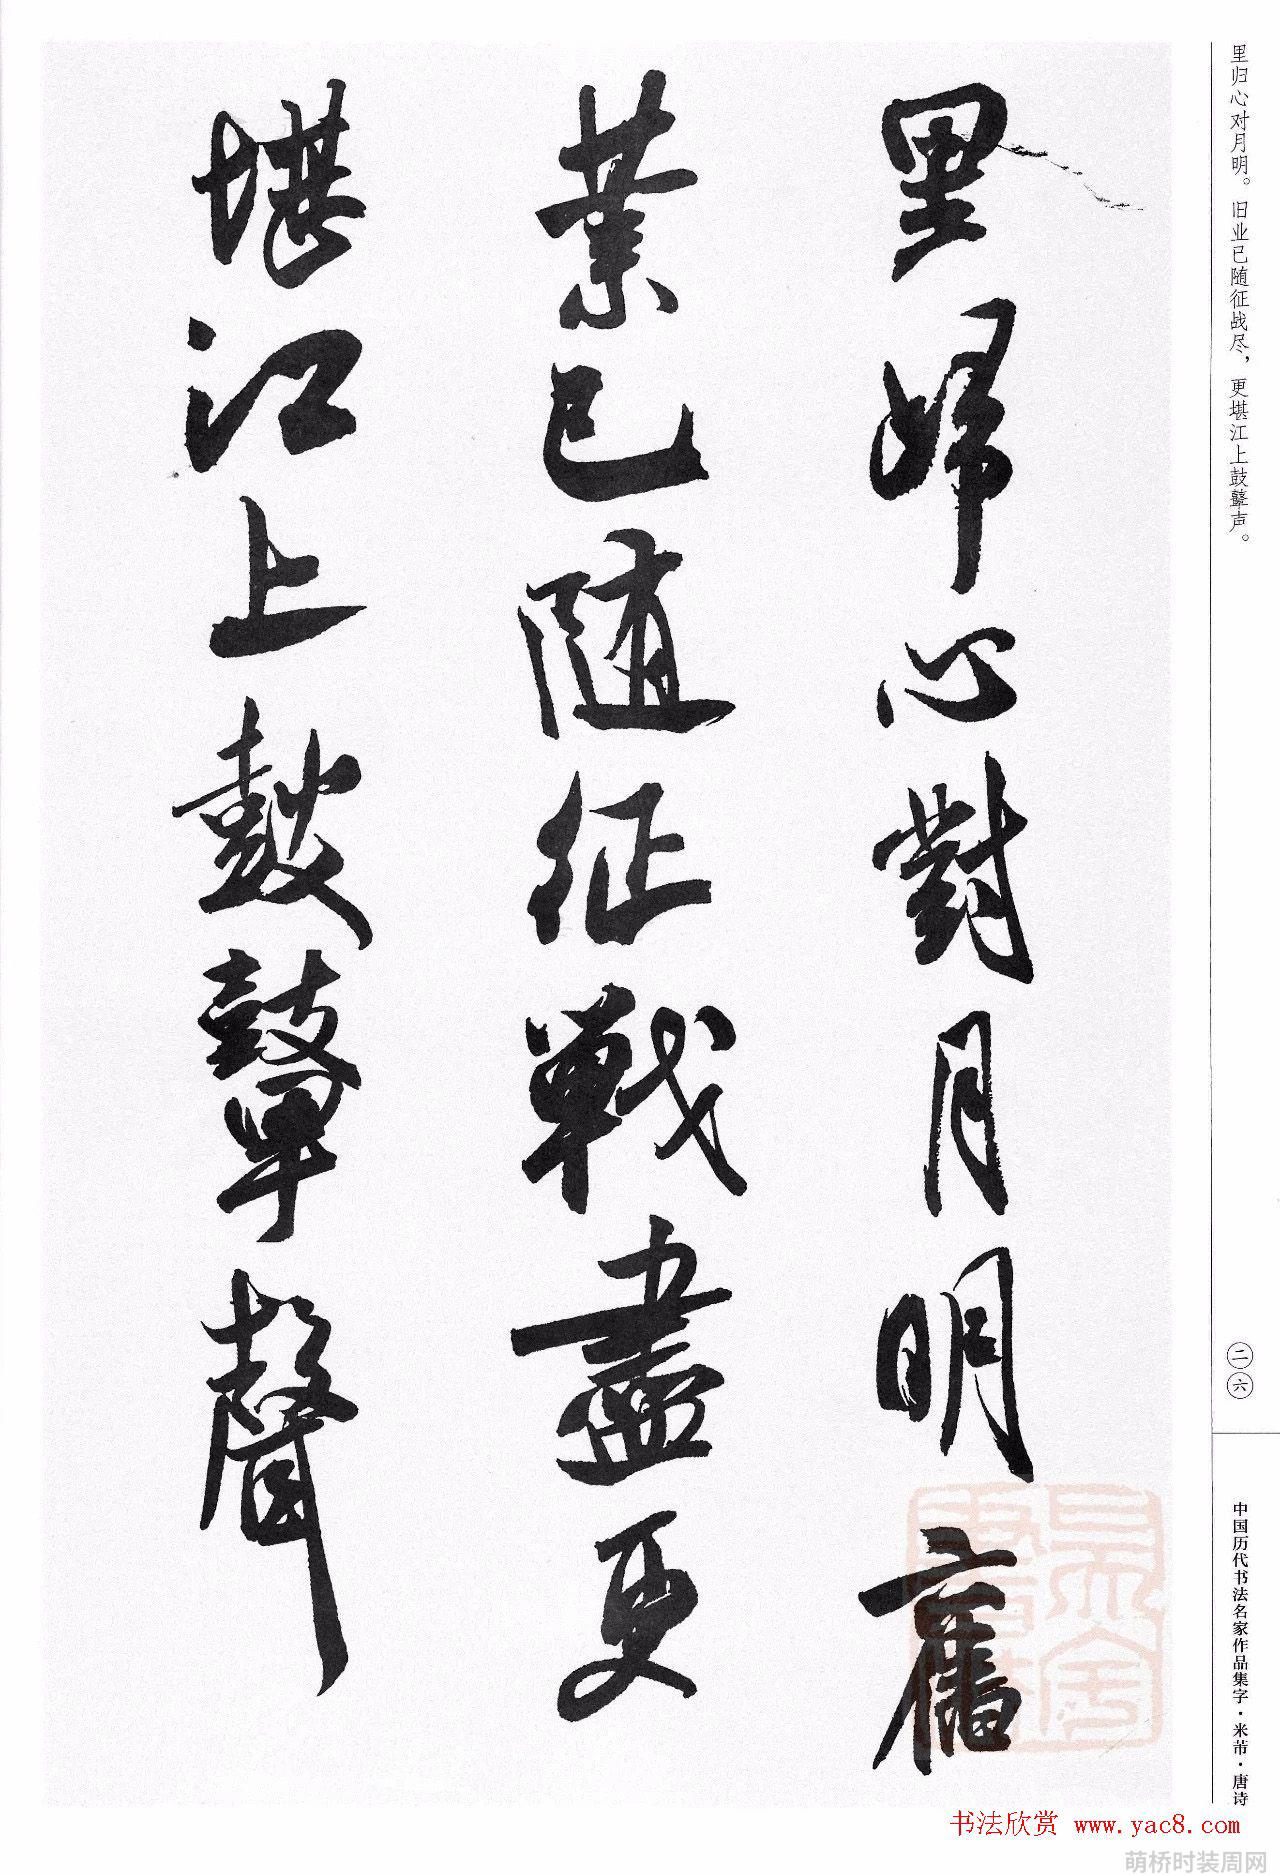 里归心对月明。旧业已随征战尽，更堪江上鼓鼙声。
里歸心對月明舊
業已随征戰盡更
堪江上鼓鼙聲
二六
中国历代书法名家作品集字·米芾·唐诗
书法欣赏 www.yac8.com
萌桥时装周网